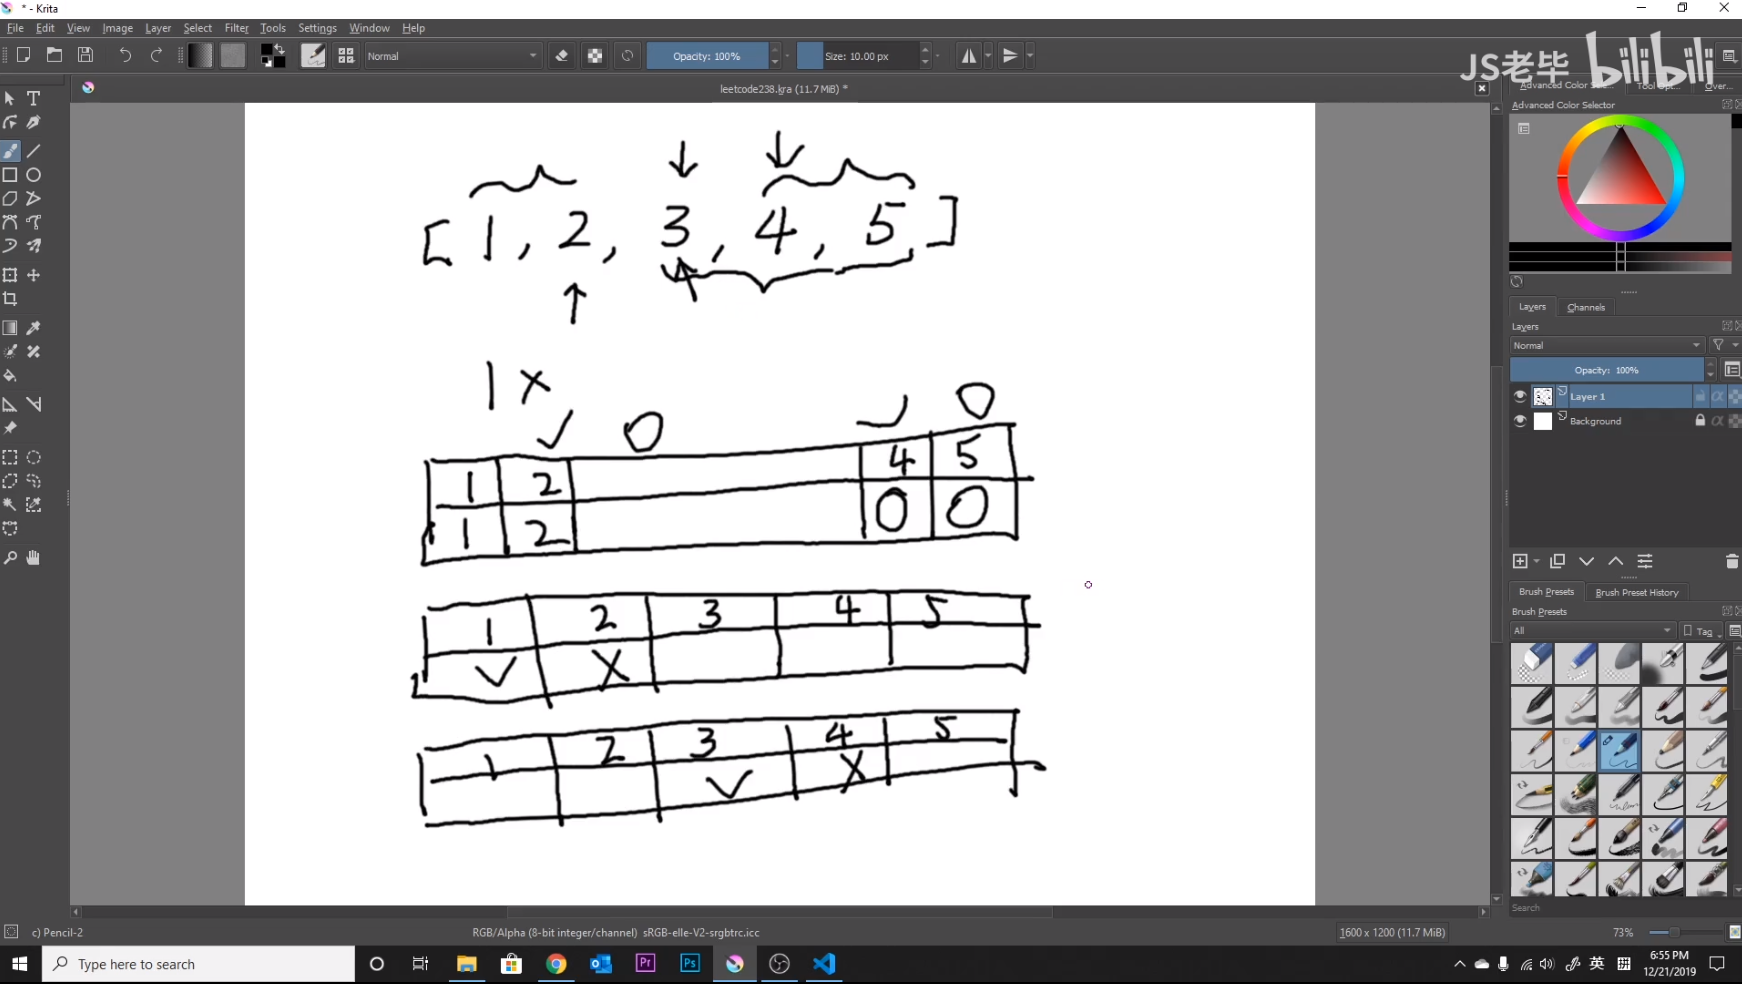 * - Krita
File Edit View Image Layer Select Filter Tools Settings Window Help
Normal Opacity: 100% Size: 10.00 px
JS老毕 bilibili
leetcode238.kra (11.7 MiB) *
Advanced Color Sele... Tool Opt... Over...
Advanced Color Selector
[1, 2, 3, 4, 5]
1 x
O O
1 2 4 5
1 2 O O
1 2 3 4 5
V X
1 2 3 4 5
V X
Layers Channels
Layers
Normal
Opacity: 100%
Layer 1
Background
Brush Presets Brush Preset History
Brush Presets
All Tag
Search
c) Pencil-2 RGB/Alpha (8-bit integer/channel) sRGB-elle-V2-srgbtrc.icc 1600 x 1200 (11.7 MiB) 73%
Type here to search
Pr Ps
英
6:55 PM
12/21/2019